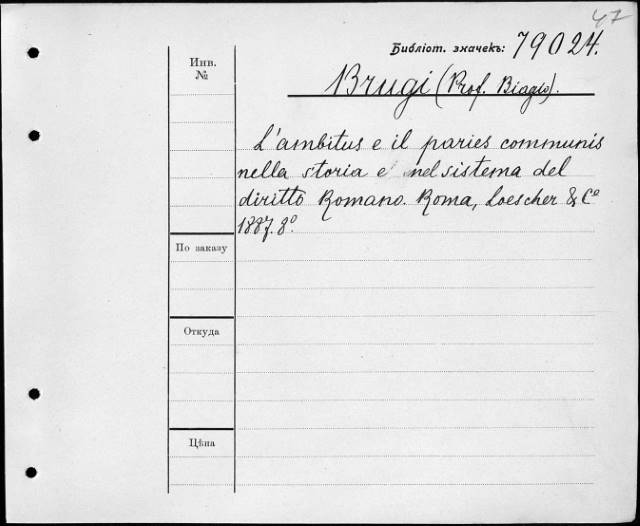 47
Библіот. значекъ: 79024.
Инв.
№
Brugi (Prof. Biagio).
L'ambitus e il paries communis
nella storia e nel sistema del
diritto Romano. Roma, Loescher & Cº
1887. 8º.
По заказу
Откуда
Цѣна